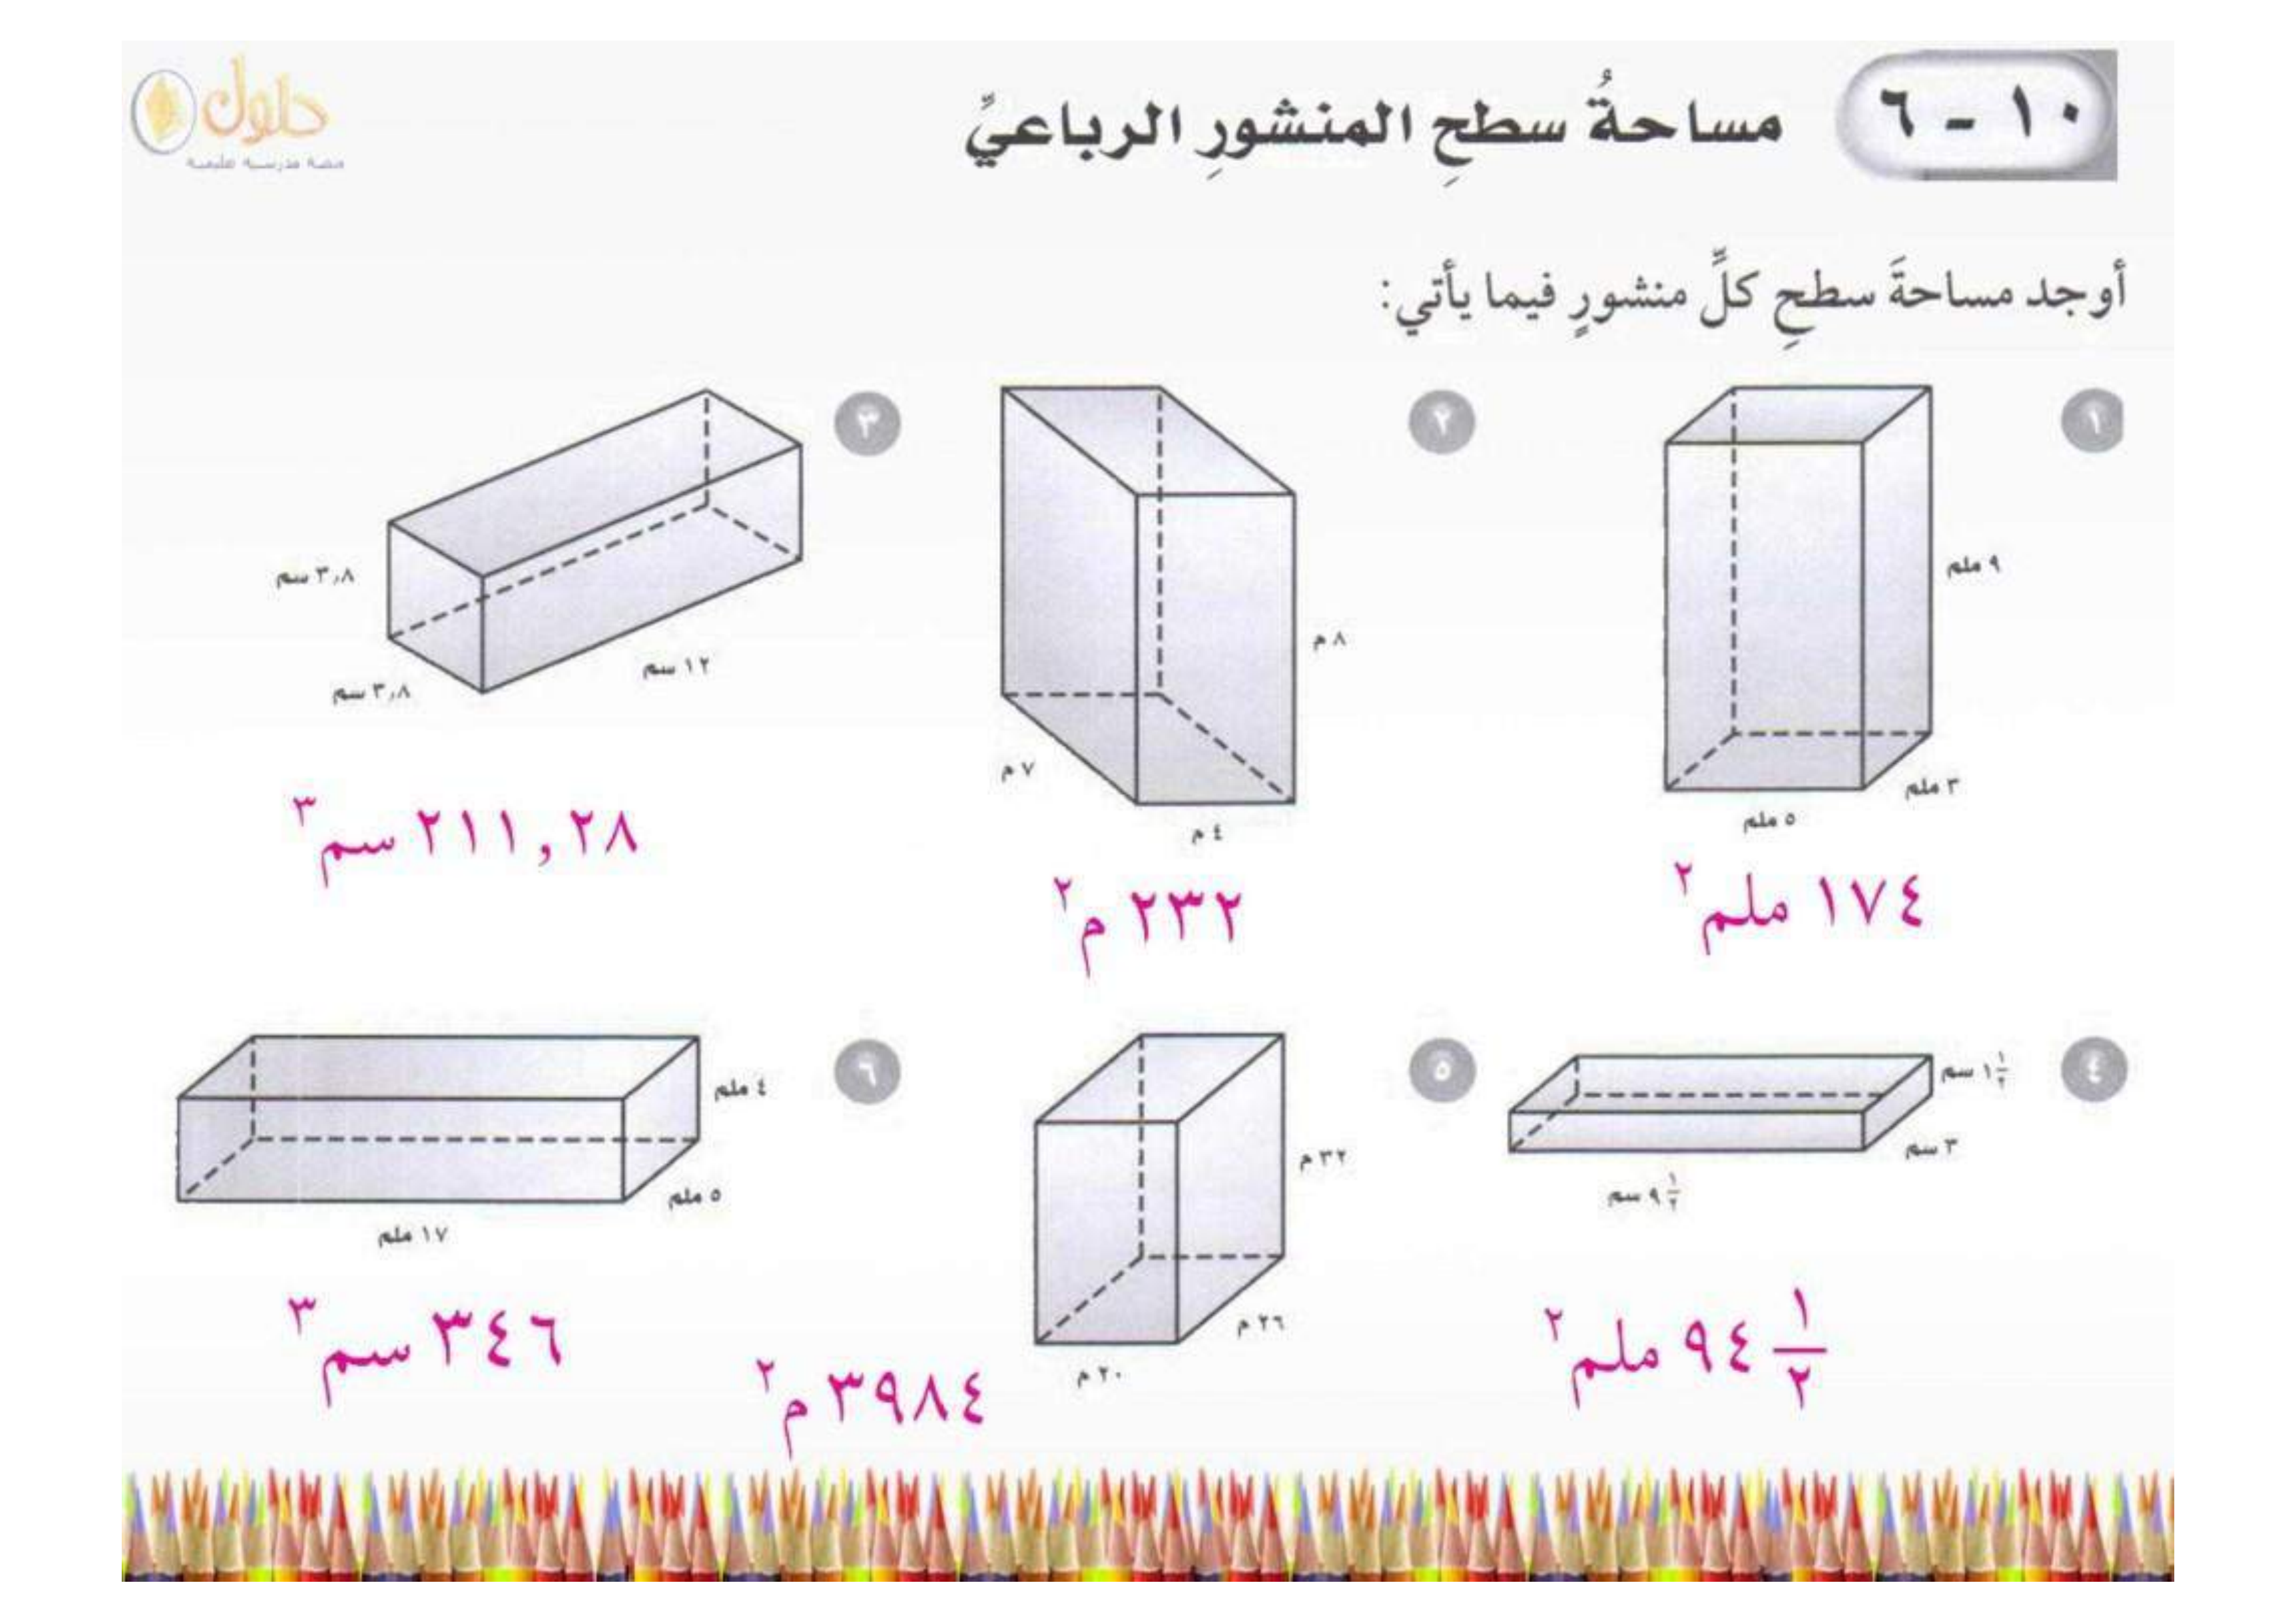 ١٠ - ٦
مساحةُ سطحِ المنشورِ الرباعيِّ
حلول
أوجد مساحةَ سطحِ كلِّ منشورٍ فيما يأتي:
١
٩ ملم
٣ ملم
٥ ملم
١٧٤ ملم٢
٢
٨ م
٧ م
٤ م
٢٣٢ م٢
٣
٣٫٨ سم
٣٫٨ سم
١٢ سم
٢١١,٢٨ سم٣
٤
١ ١/٢ سم
٣ سم
٩ ١/٢ سم
٩٤ ١/٢ ملم٢
٥
٣٢ م
٢٦ م
٢٠ م
٣٩٨٤ م٢
٦
٤ ملم
٥ ملم
١٧ ملم
٣٤٦ سم٣